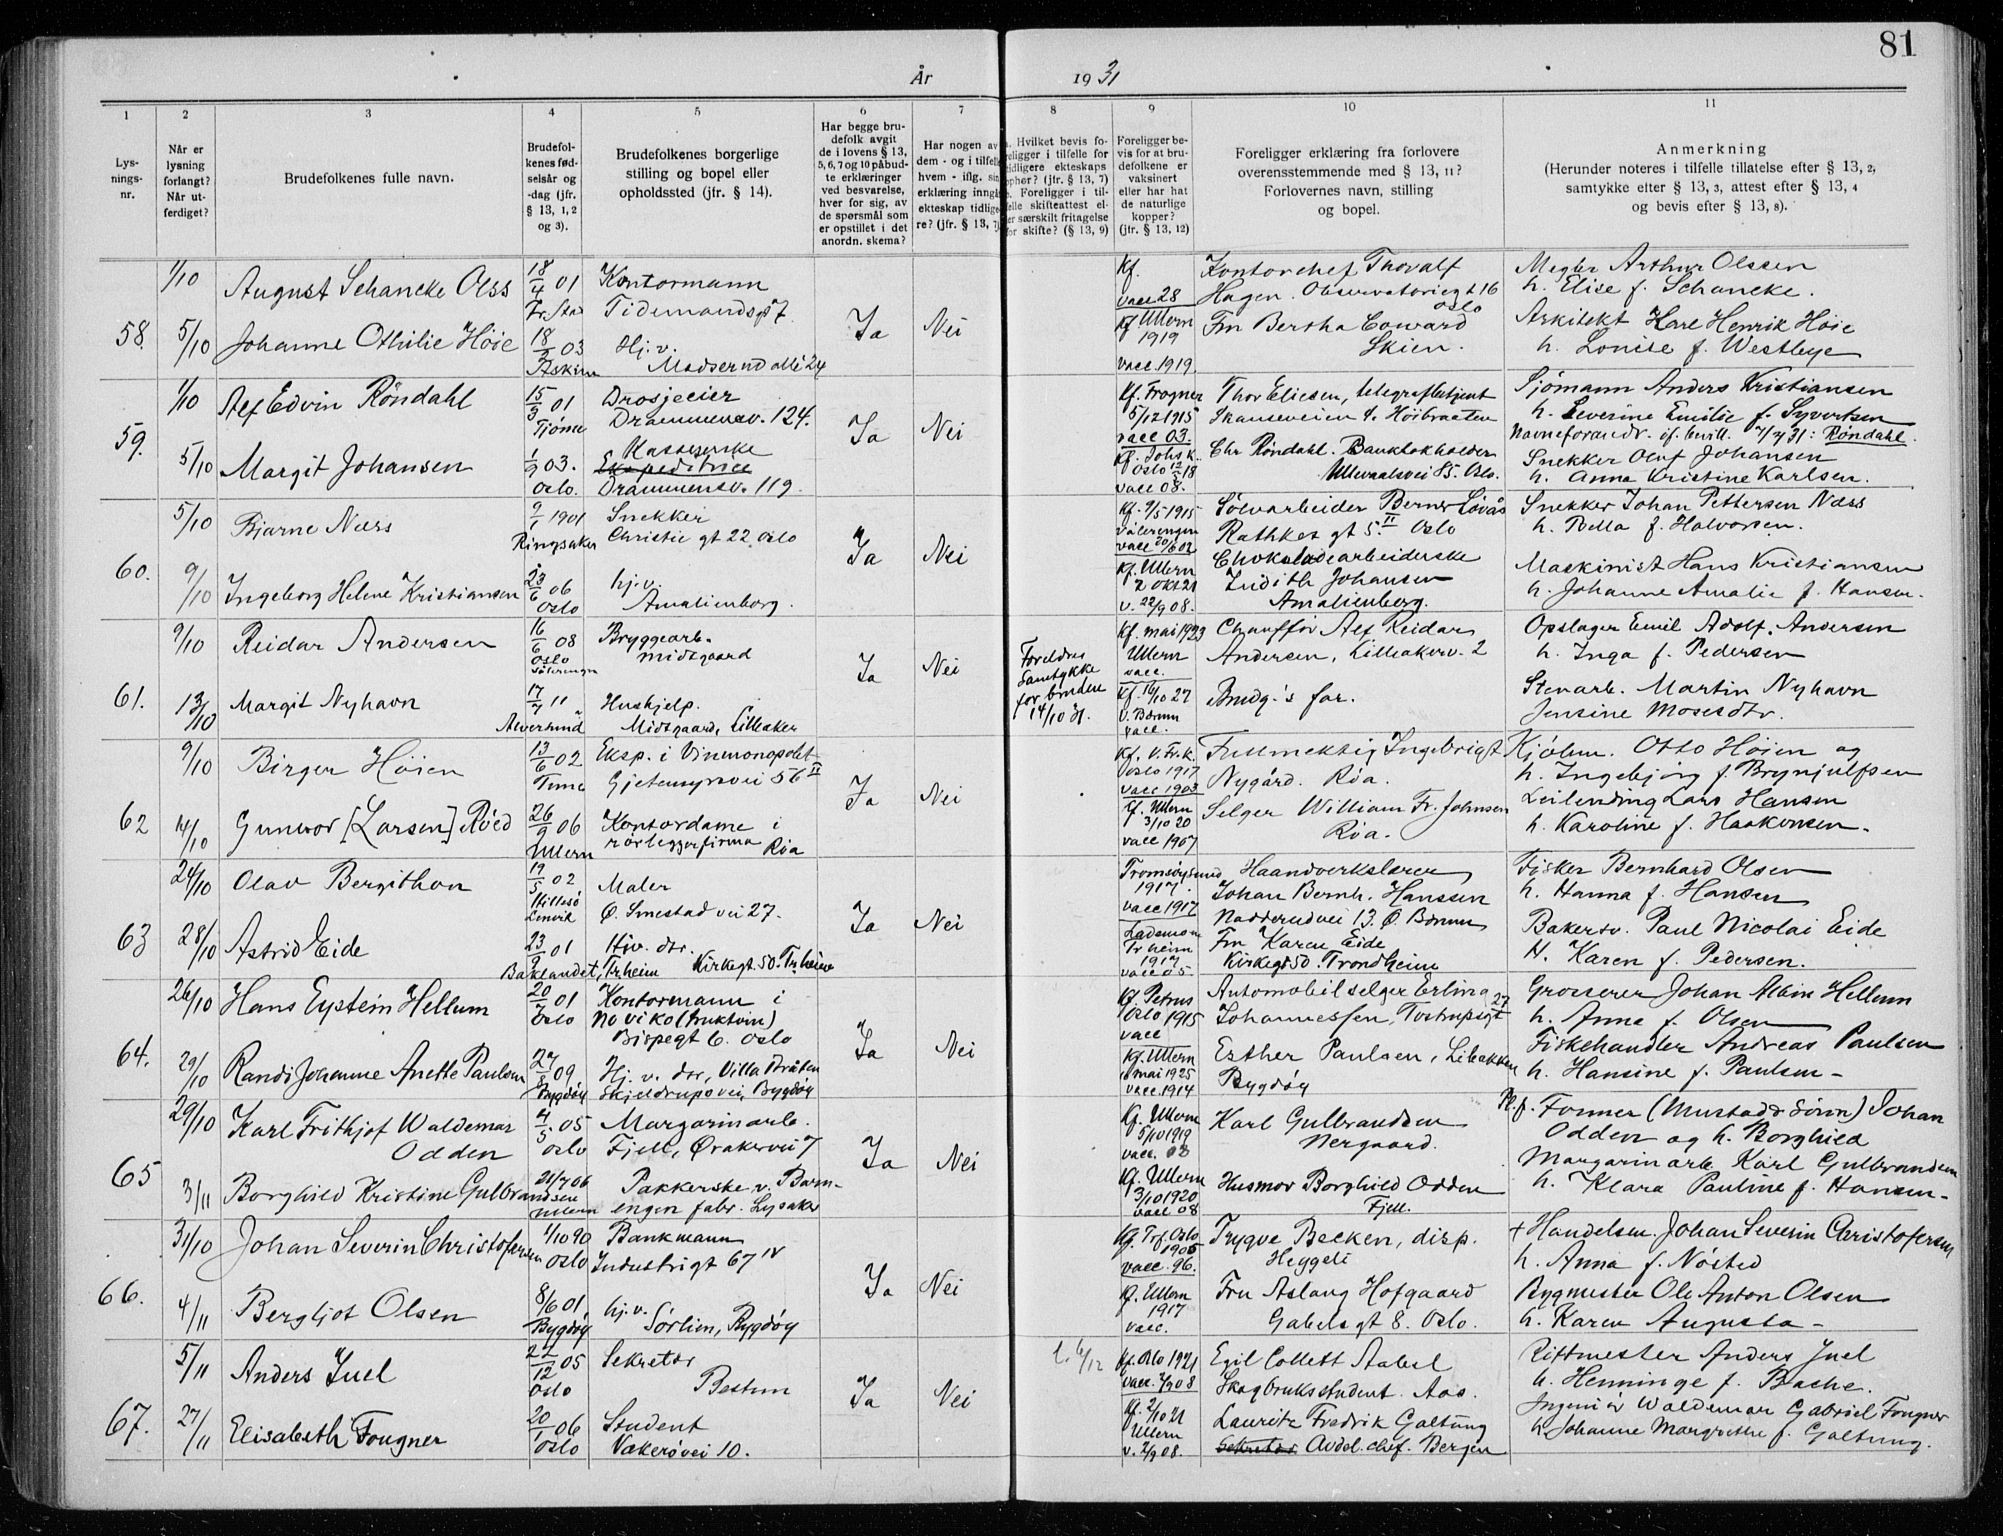 81
År 1931
1
2
3
4
5
6
7
8
9
10
11
Lysningsnr.
Når er lysning forlangt? Når utferdiget?
Brudefolkenes fulle navn.
Brudefolkenes fødselsår og -dag (jfr. § 13, 1, 2 og 3).
Brudefolkenes borgerlige stilling og bopel eller opholdssted (jfr. § 14).
Har begge brudefolk avgit de i lovens § 13, 5, 6, 7 og 10 påbudte erklæringer ved besvarelse, hver for sig, av de spørsmål som er opstillet i det anordn. skema?
Foreligger bevis for at brudefolkene er vaksinert eller har hat de naturlige kopper? (jfr. § 13, 12)
Foreligger erklæring fra forlovere overensstemmende med § 13, 11? Forlovernes navn, stilling og bopel.
Anmerkning
(Herunder noteres i tilfelle tillatelse efter § 13, 2, samtykke efter § 13, 3, attest efter § 13, 4 og bevis efter § 13, 8).
58. 1/10 August Schancke Olss
18/4 01 Fr.stad
Kontormann
Ja Nei
Kf. vacc 28
Kontorchef Thoralf
Hagen. Observatoriegt 16 Oslo
Megler Arthur Olssen
h. Elise f. Schancke.
5/10 Johanne Othilie Høie
03 Askim
Hj.v.
Madserud allé 24
Kf Ullern 1919
vacc. 1919
Fru Bertha Coward
Skien.
Arkitekt Karl Henrik Høie
h. Louise f. Westbye
59. 1/10 Alf Edvin Røndahl
15/3 01 Tjøme
Drosjeeier
Drammensv. 124.
Ja Nei
Kf. Frogner
5/12 1915
vacc 03.
Thor Eliesen, telegrafbetjent
Skanseveien 4. Høibraaten
Sjømann Anders Kristiansen
h. Severine Emilie f. Syvertsen
Navneforandr. if. bevill. 31: Røndahl.
5/10 Margit Johansen
1/9 03. Oslo.
Kassererske
Ekspeditrice
Drammensv. 119.
Kf. Johs k.
Oslo 18
vacc 08.
Chr Røndahl. Banklokholder
Ullevaalsvei 85. Oslo.
Snekker Oluf Johansen
h. Anna Kristine Karlsen.
60. 5/10 Bjarne Næss
1901 Ringsaker
Snekker
Christies gt 22 Oslo
Ja Nei
Kf. 9/5 1915
Vålerengen
Sølvarbeider Berner Løvås
Rathkes gt 5 II Oslo
Snekker Johan Pettersen Næss
h. Bella f. Halvorsen.
9/10 Ingeborg Helene Kristiansen
23/6 06 Oslo
hj.v.
Amalienborg.
Kf. Ullern
2 okt 21
v. 22/9 08.
Chokoladearbeiderske
Judith Johansen
Amalienberg.
Maskinist Hans Kristiansen
h. Johanne Amalie f. Hansen.
61. 9/10 Reidar Andersen
16/6 08 Oslo
Bryggearb.
Midtgaard
Ja Nei
Foreldres
samtykke
for bruden
14/10 31.
Kf. mai 1923
Ullern
vacc.
Chauffør Alf Reidar
Andersen, Lilleakerv. 2
Opslager Emil Adolf Andersen
h. Inga f. Pedersen
13/10 Margit Nyhavn
17/7 11
Alversund
Hushjelp.
Midtgaard, Lilleaker
Kf. 16/10 27
V. Bærum
vacc.
Brudg.'s far.
Stenarb. Martin Nyhavn
Jensine Mosesdtr.
62 9/10 Birger Høien
13/6 02 Tune
Eksp. i Vinmonopolet
Gjetemyrsvei 56 II
Ja Nei
Kf. V. Fr.k.
Oslo 1917
vacc 1903
Fullmektig Ingebrigt
Nygård. Røa.
Kjøbm. Otto Høien og
h. Ingebjørg f. Brynjulfsen
14/10 Gunvor [Larsen] Røed
26/9 06 Ullern
Kontordame i
rørleggerfirma Røa
Kf. Ullern
3/10 20
vacc 1907
Selger William Fr. Johnsen
Røa.
Leilending Lars Hansen
h. Karoline f. Haakensen.
63 24/10 Olav Bergithon
19/5 02
Hillesø
Lenvik
Maler
Ø. Smestad vei 27.
Ja Nei
Tromsøysund
1917.
vacc 1917
Haandverkslærer
Johan Bernh. Hanssen
Nadderudvei 13. Ø. Bærum
Fisker Bernhard Olsen
h. Hanna f. Hansen
28/10 Astrid Eide
23/9 01
Baklandet, Tr.heim
Hjv. dtr.
Kirkegt. 50. Tr.heim
Lademoen
Tr heim
1917
vacc 05.
Fru Karen Eide
Kirkegt 50. Trondheim
Bakersv. Paul Nicolai Eide
H. Karen f. Pedersen.
64. 26/10 Hans Eystein Hellum
20/7 01 Oslo
Kontormann i
Noviko (Fruktvin)
Bispegt 6. Oslo
Ja Nei
Kf. Petrus
Oslo 1915
vacc
Automobilselger Erling
Johannessen, Tostrupsgt 27
Grosserer Johan Albin Hellum
h. Anna f. Olsen
29/10 Randi Johanne Anette Paulsen
27/8 09 Bygdøy
Hj. v. dtr, Villa Bråten
Skjeldrupsvei, Bygdøy
Kf. Ullern
mai 1925
vacc. 1914
Esther Paulsen, Lilleakken
Bygdøy
Fiskehandler Andreas Paulsen
h. Hansine f. Paulsen-
65 29/10 Karl Frithjof Waldemar
Odden
4/5. 05 Oslo
Margarinarb.
Fjell, Ørakervei 7
Ja Nei
Kf. Ullern
5/10 1919
vacc. 08
Karl Gulbrandsen
Nergaard.
Pl.f. Former (Mustad & Sønn) Johan
Odden og h. Borghild
3/11 Borghild Kristine Gulbrandsen
21/7 06 Ullern
Pakkerske v. Barmengen fabr. Lysaker
Kf. Ullern
3/10 1920
vacc 08
Husmor Borghild Odden
Fjell.
Margarinarb. Karl Gulbrandsen
h. Klara Pauline f. Hansen-
66. 31/10 Johan Severin Christofersen
1/10 90 Oslo
Bankmann
Industrigt 67 IV
Ja Nei
Kf. Trf. Oslo
1905
vacc. 96.
Trygve Becken, disp.
Heggeli
+ Handelsm. Johan Severin Christofersen
h. Anna f. Nøsted
4/11 Bergljot Olsen
8/6 01, Bygdøy
hj.v.
Sørlien, Bygdøy
Kf. Ullern
1917
vacc.
Fru Aslaug Hofgaard
Gabels gt 8. Oslo.
Bygmester Ole Anton Olsen
h. Karen Augusta-
67. 5/11 Anders Juel
22/12 05 Oslo
Sekretær
Bestum
Ja Nei
Kf. Oslo 1921
vacc. 2/9 08
Egil Collett Aabel
Skogbruksstudent. Aas.
Rittmester Anders Juel
h. Henninge f. Bache.
27/11 Elisabeth Fougner
20/ 06 Oslo
Student
Vækerøvei 10.
Kf. 2/10 21
Ullern
v. 2/9 08.
Lauritz Fredrik Galtung
Sekretær Avdel. chef. Bergen
Ingeniør Waldemar Gabriel Fougner
h. Johanne Margrethe f. Galtung.